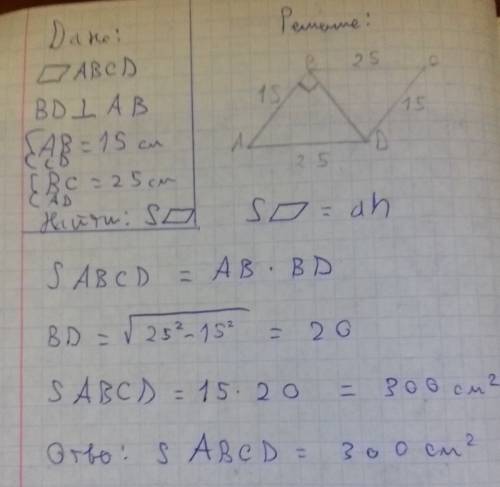 Дано:
Решение:
▱ ABCD
BD ⊥ AB
{ AB = 15 см
CD
{ BC = 25 см
AD
Найти: S▱
B 25 C
15 15
A 25 D
S▱ = ah
S ABCD = AB · BD
BD = √25²-15² = 20
S ABCD = 15 · 20 = 300 см²
Отве: S ABCD = 300 см²